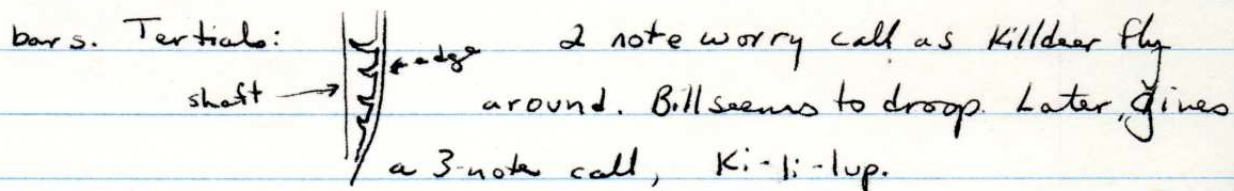 bars. Tertials: edge 2 note worry call as Killdeer fly
shaft around. Bill seems to droop. Later, gives
a 3-note call, Ki-li-lup.